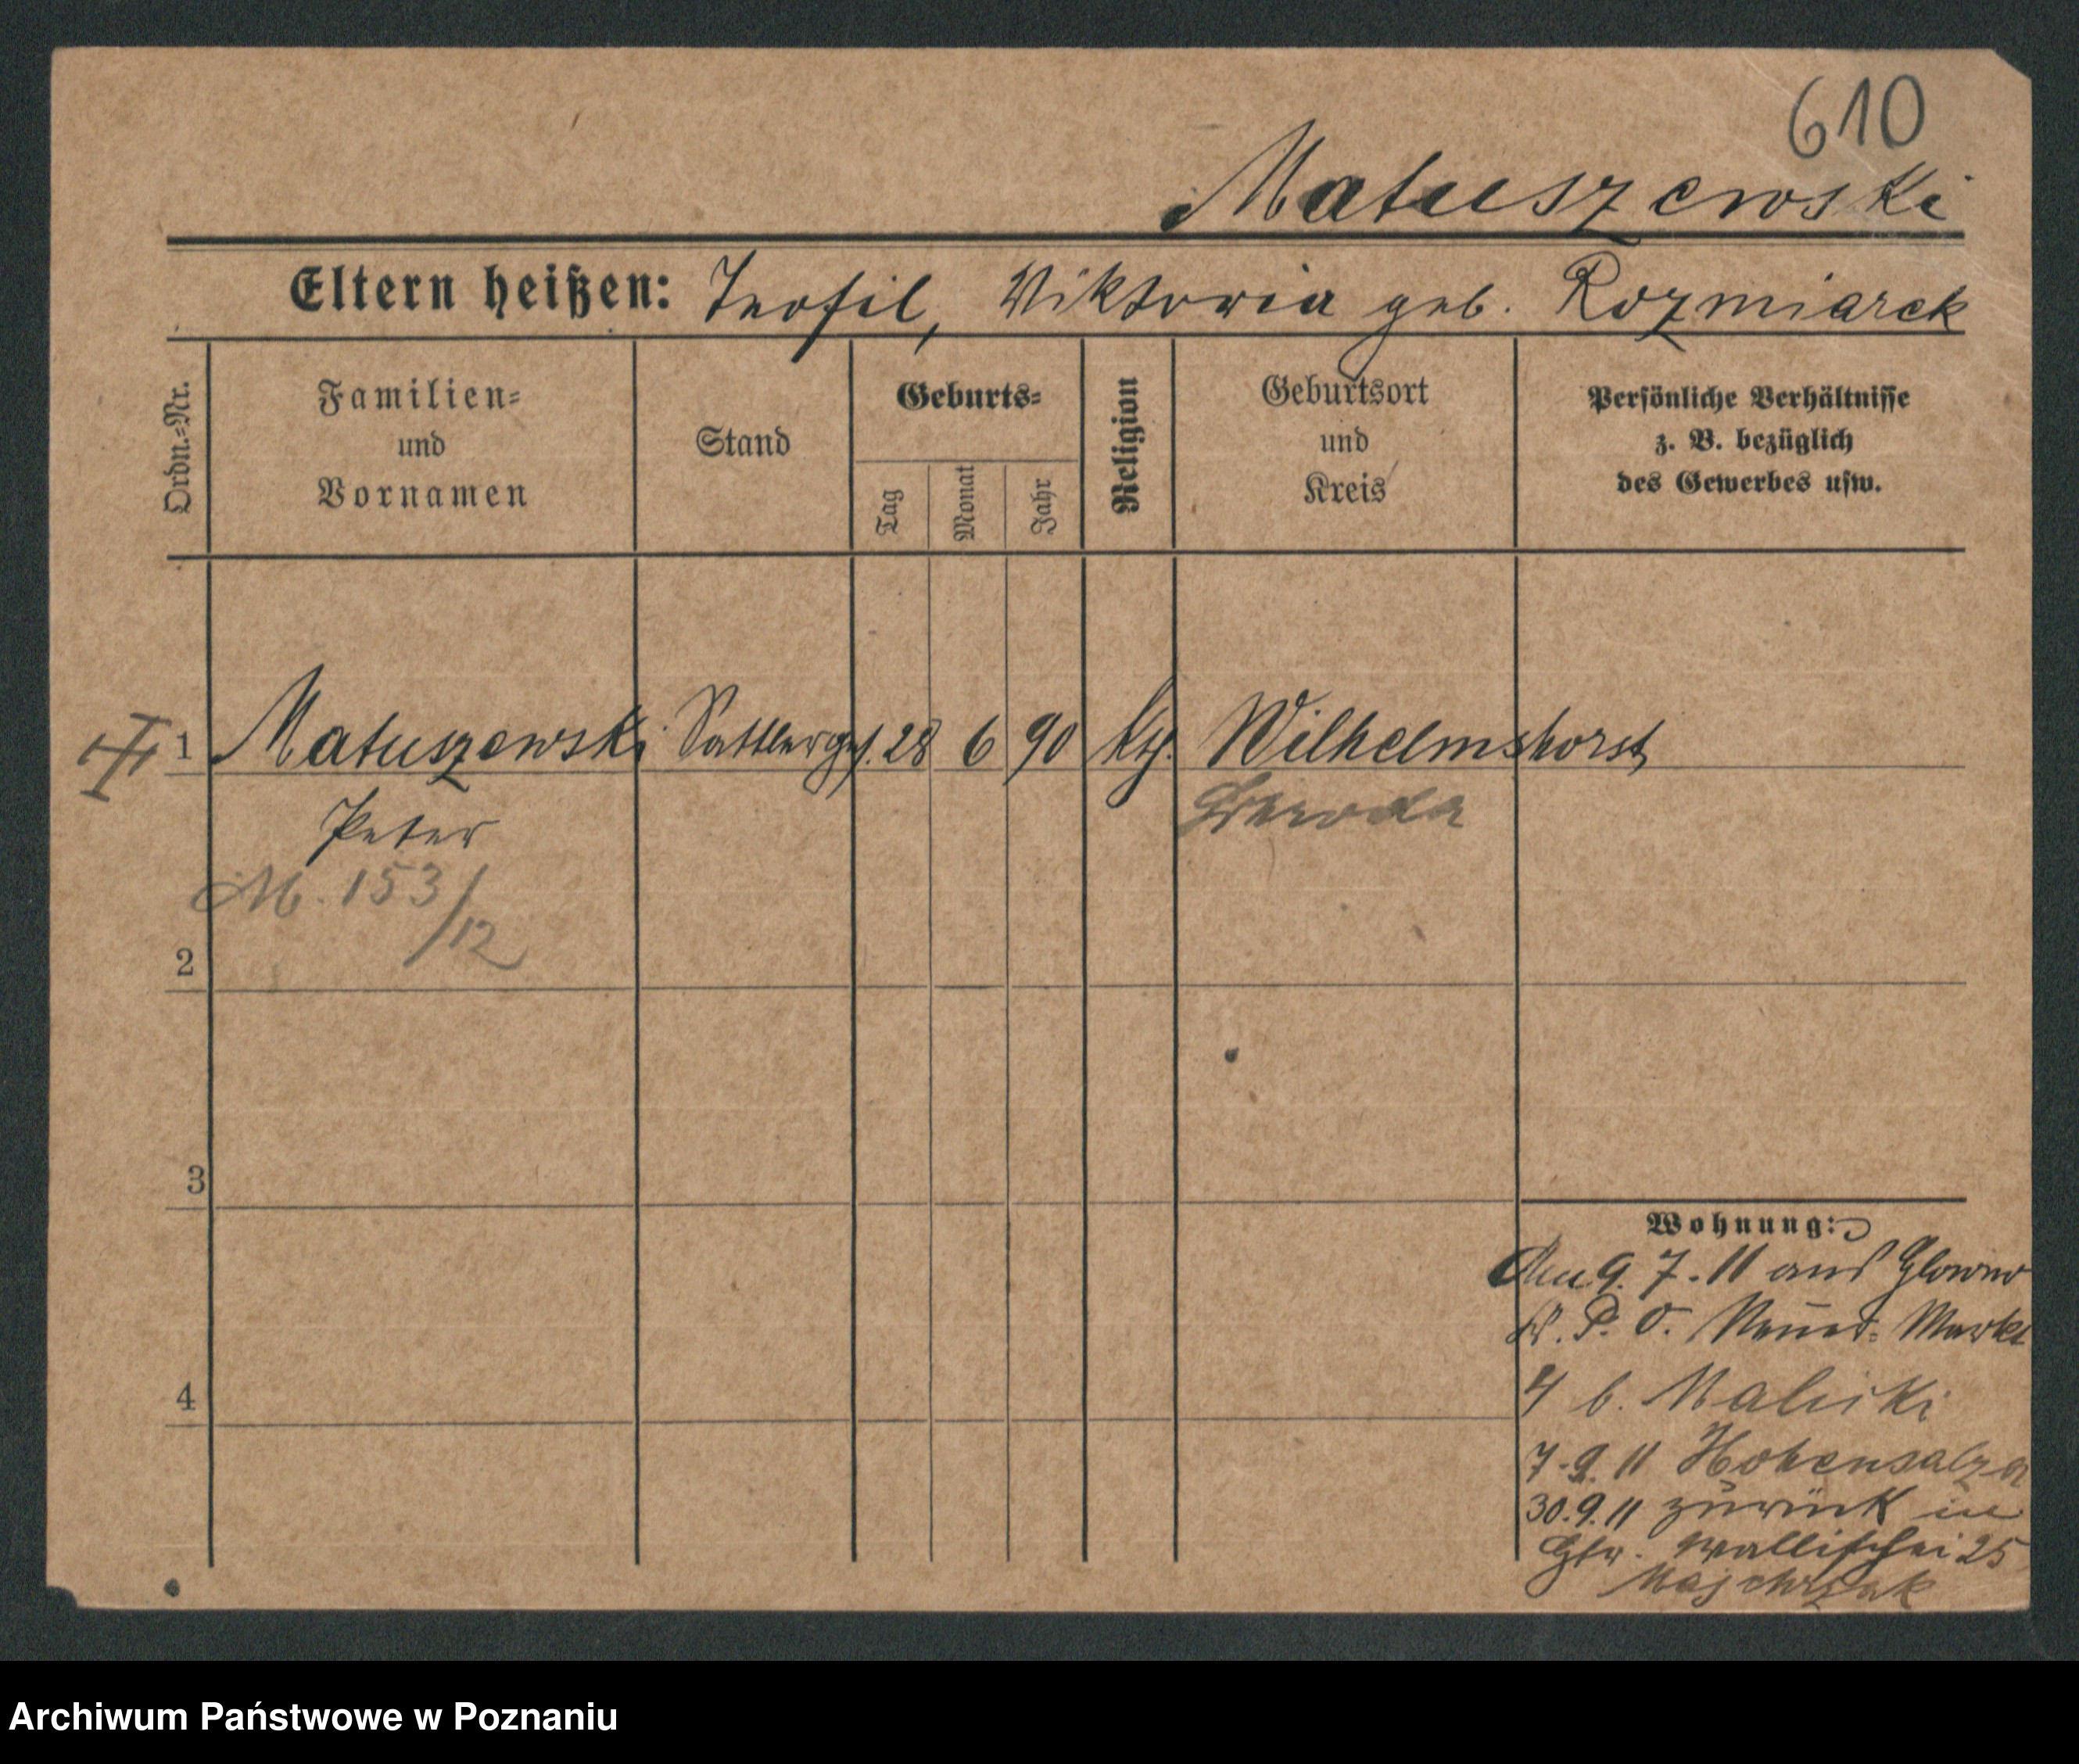 610
Matuszewski
Eltern heißen: Teofil, Viktoria geb. Rozmiarek
Ordn.=Nr.
Familien=
und
Vornamen
Stand
Geburts=
Tag
Monat
Jahr
Religion
Geburtsort
und
Kreis
Persönliche Verhältnisse
z. B. bezüglich
des Gewerbes usw.
1 Matuszewski Sattlerges. 28 6 90 kth. Wilhelmshorst
Peter Schroda
M. 153/12
2
3
4
Wohnung:
9. 7. 11 aus Glowno
P. O. Neuer Markt
4 b. Maliski
7. 9. 11 Hohensalza
30. 9. 11 zurück in
Wallischei 25
Majchrzak
Archiwum Państwowe w Poznaniu